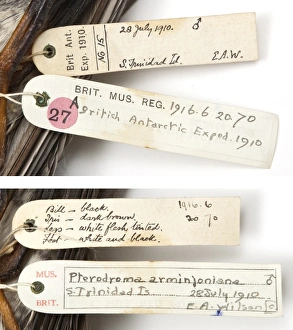 Brit. Ant. Exp. 1910.
No 15
28 July 1910. ♂
S. Trinidad Id. E.A.W.
BRIT. MUS. REG. 1916.6 20.70
27
A
British Antarctic Exped. 1910
Bill – black. 1916.6
Iris – dark brown. 20 70
Legs – white flesh tinted.
Feet – white and black.
MUS.
BRIT.
Pterodroma arminjoniana ♂
S Trinidad Is. 28 July 1910
E.A. Wilson